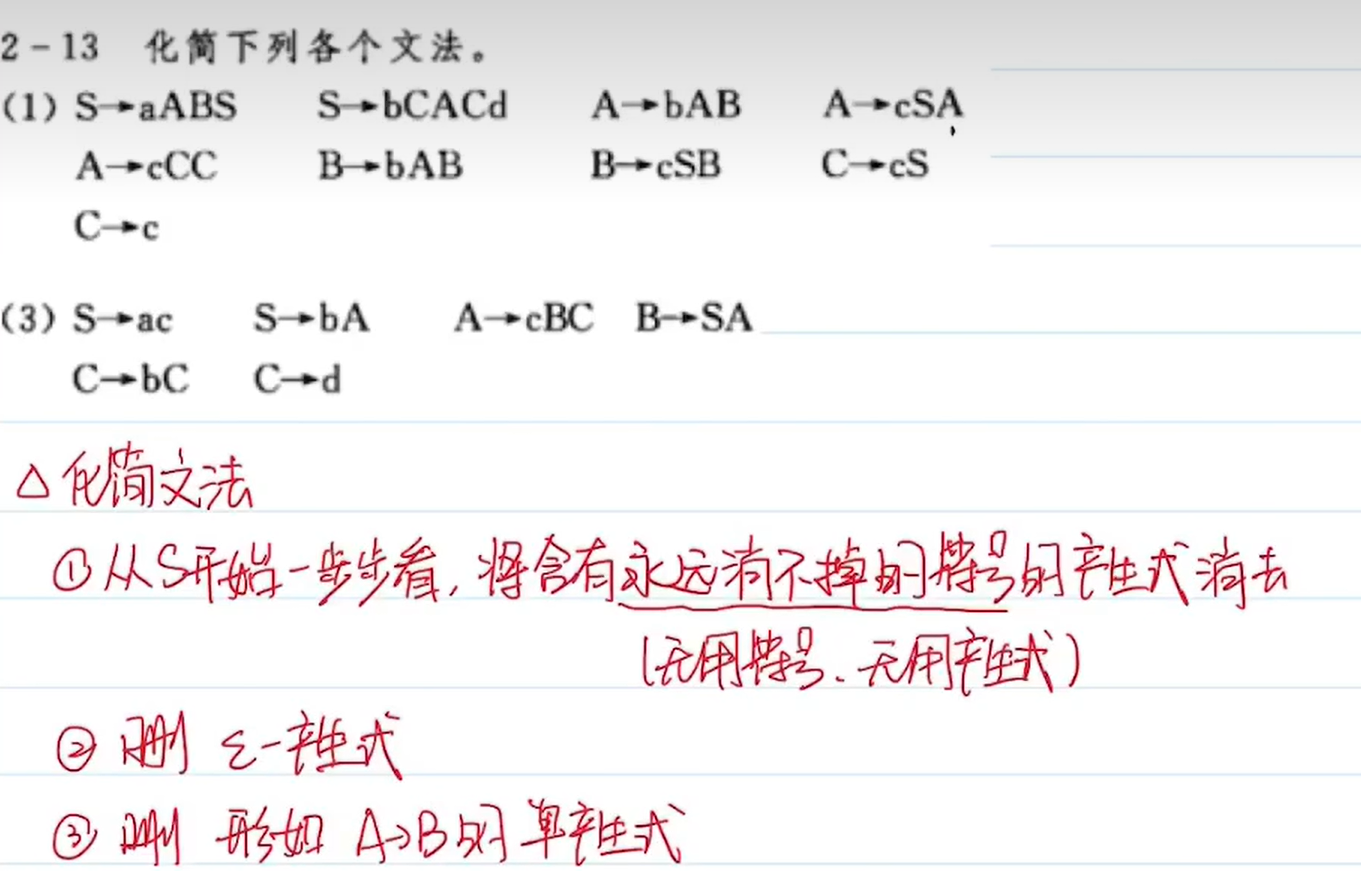 2-13 化简下列各个文法。
(1) S→aABS S→bCACd A→bAB A→cSA
A→cCC B→bAB B→cSB C→cS
C→c
(3) S→ac S→bA A→cBC B→SA
C→bC C→d
△ 化简文法
① 从S开始一步步看, 将含有永远消不掉的符号的产生式消去
(无用符号、无用产生式)
② 删 ε-产生式
③ 删 形如 A→B的单产生式